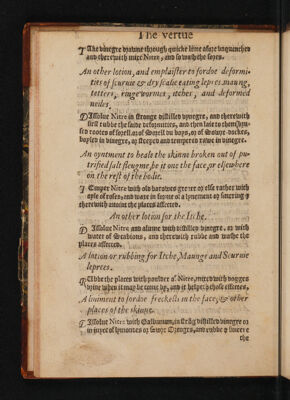 The vertue
TAke vinegre drawne through quicke lime after
and therewith mixe Nitre, and so wash the sores.
An other lotion, and emplaister to fordoe deformi-
ties of scurvie & dry scabe eating lepres, maung,
tetters, ringewormes, itches, and deformed
neiles.
DIssolue Nitre in strong distilled vinegre, and therewith
first rubbe the saide deformities, and then laie to them
rootes of sorell, as of Sorell du boys, or of Sowre dockes,
boyled in vinegre, or steeped and tempered rawe in vinegre.
An oyntment to heale the skinne broken out of pu-
trified salt fleugme, be it one the face, or elsewhere
on the rest of the bodie.
TEmper Nitre with old barowes grece or els rather with
oyle of roses, and waxe in forme of a lynement or smering &
therewith annoint the places affected.
An other lotion for the Itche.
DIssolue Nitre and alume with distilled vinegre, or with
water of Scabious, and therewith rubbe and washe the
places affected.
A lotion or rubbing for Itche, Maunge and Scurvie
leprees.
RUbbe the places with powder of Nitre, mixed with dogges
vrine when it may be come by, and it helpeth those effectes.
A liniment to fordoe freckells in the face, & other
places of the skinne.
DIssolue Nitre with Galbanum, in strõg distilled vinegre or
in iuyce of lymones or Sowre Orenges, and rubbe &
the